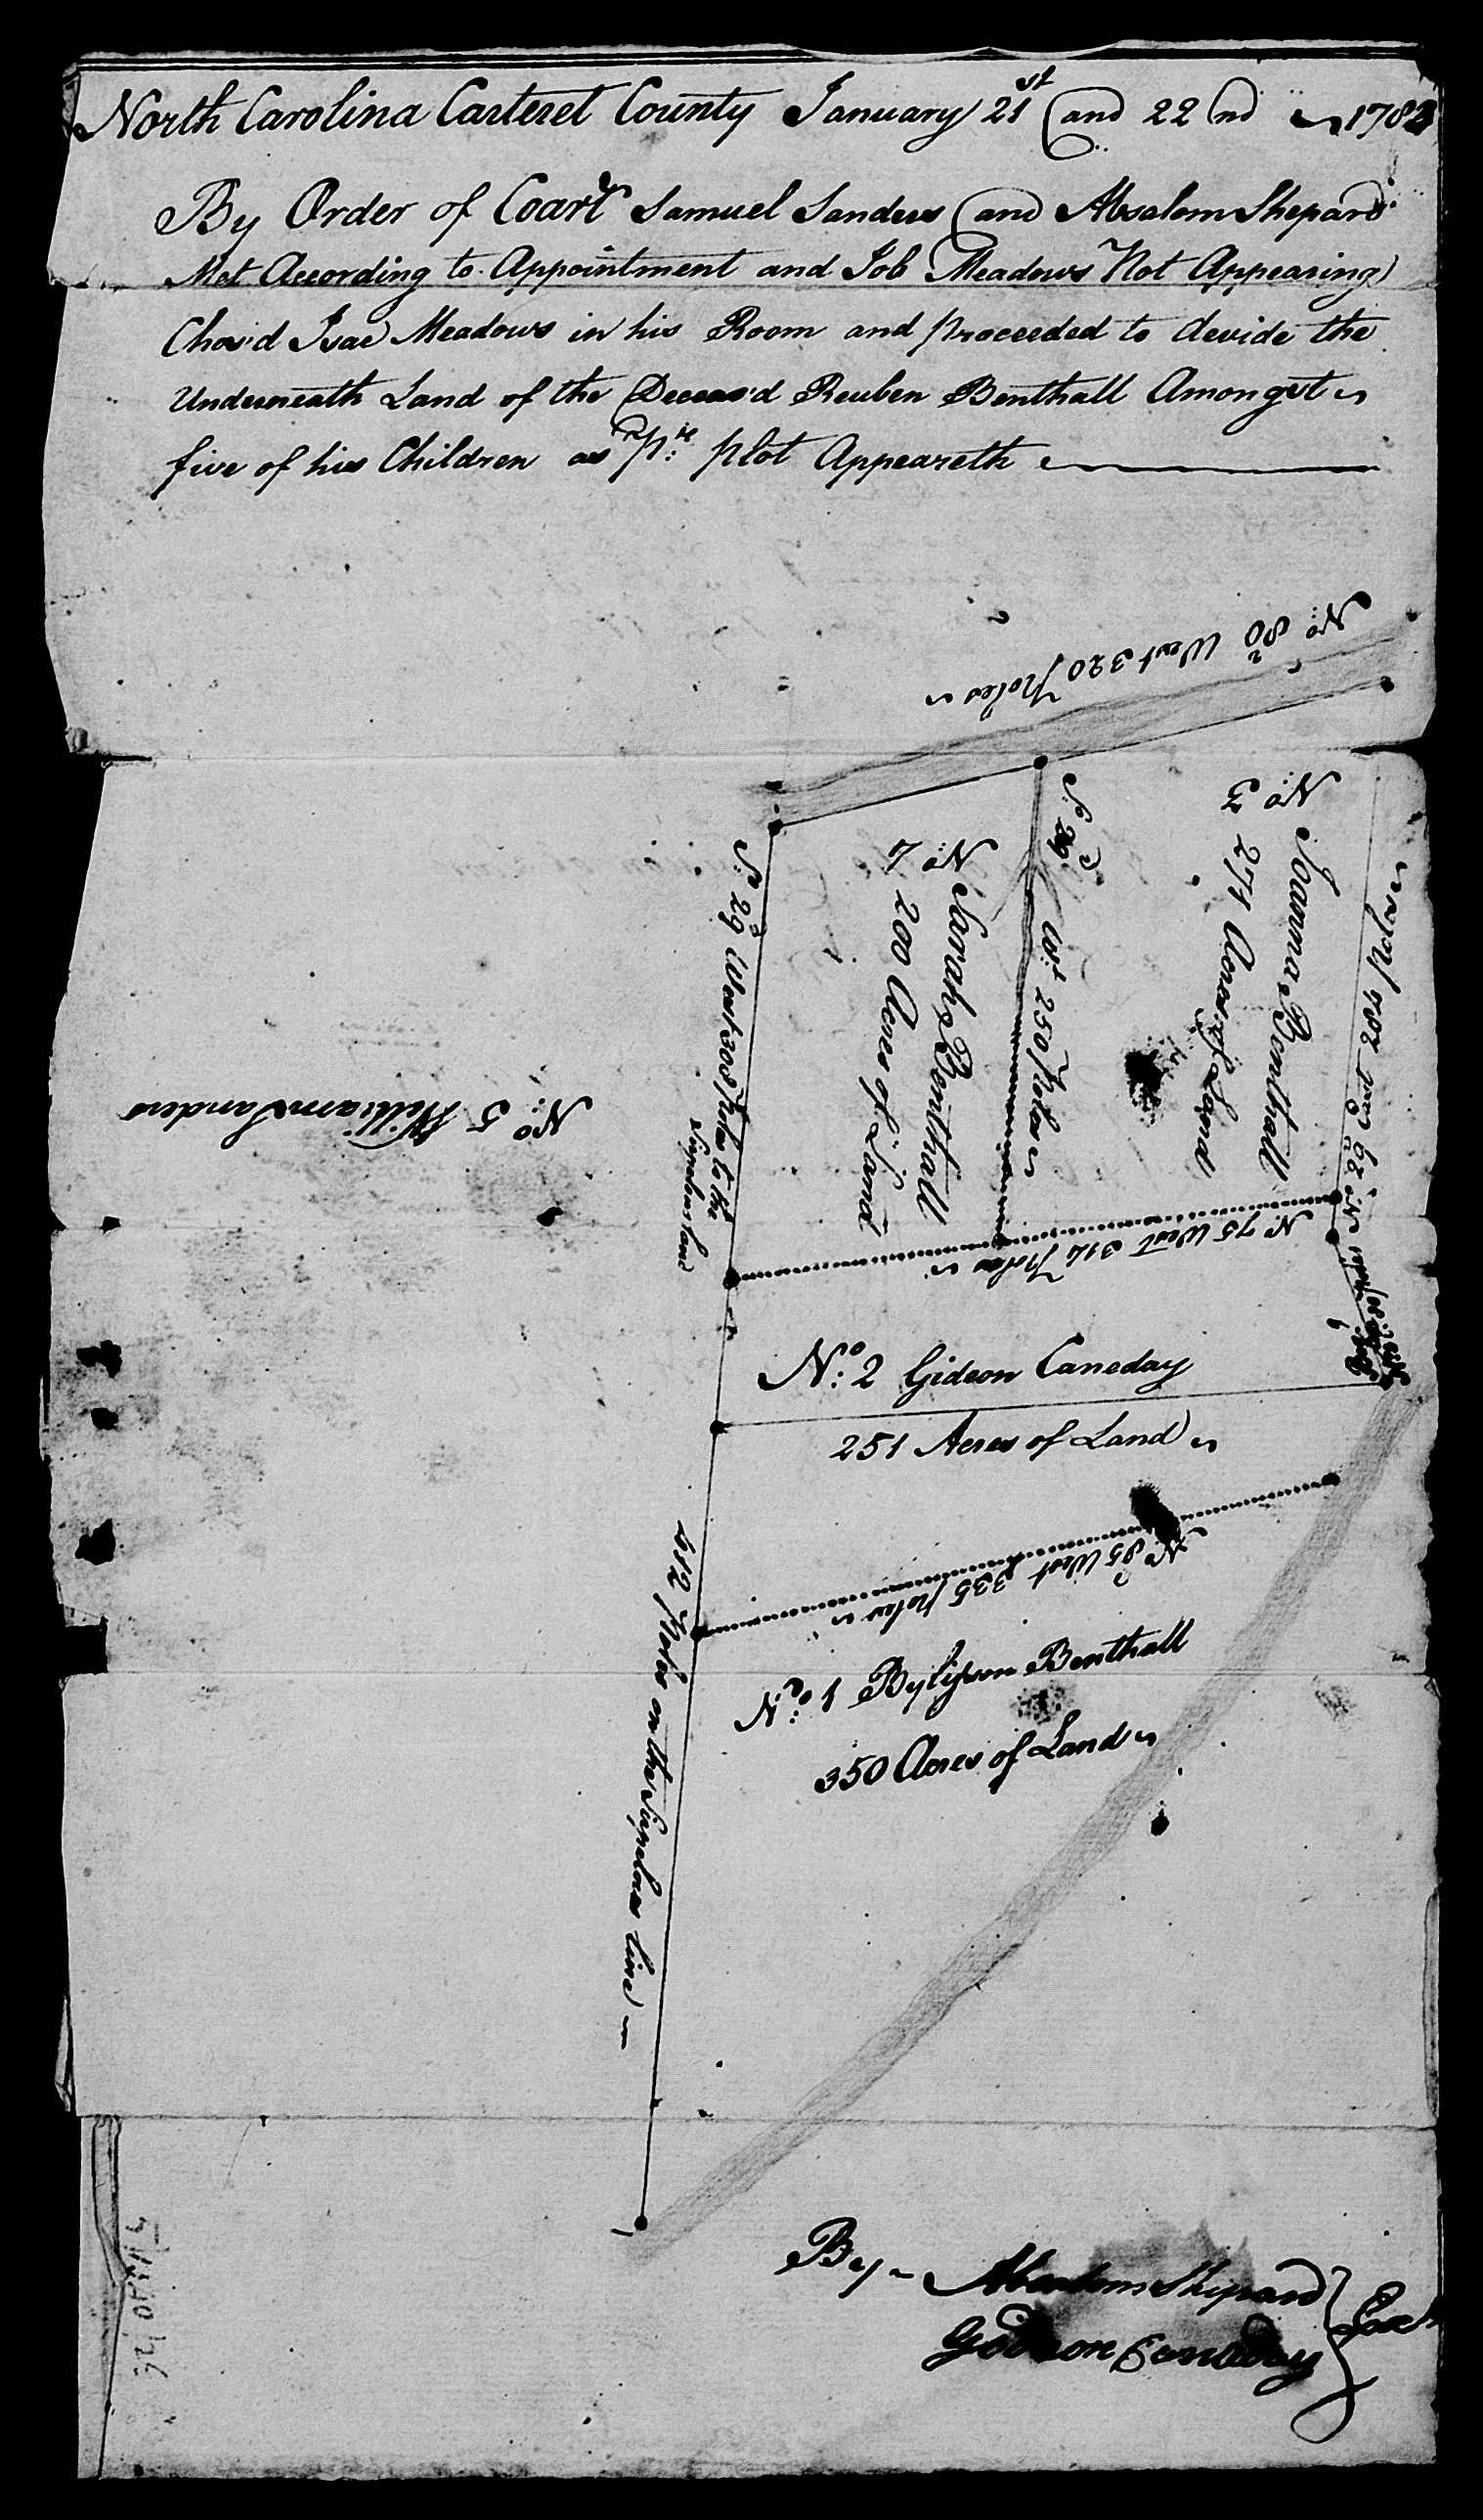 North Carolina Carteret County January 21st and 22nd 178
By Order of Coart Samuel Sanders and Absalom Shepard
Met According to Appointment and Job Meadows Not Appearing
Chos'd Isac Meadows in his Room and proceeded to devide the
Underneath Land of the Deceas'd Reuben Benthall Amongst
five of his Children as pr. plot Appeareth
No. 80 West 320 poles
No. 3 Joanna Benthall
271 Acres of Land
So. 29 Wt. 250 poles
No. 4 Sarah Benthall
200 Acres of Land
So. 29 West 300 poles to the
No. 29 East 204 poles
No. 5 William Sanders
No. 75 West 314 poles
No. 2 Gideon Caneday
251 Acres of Land
No. 85 West 335 poles
No. 1 Benthall
350 Acres of Land
612 poles on the line
By Absalom Shepard
Gideon Caneday